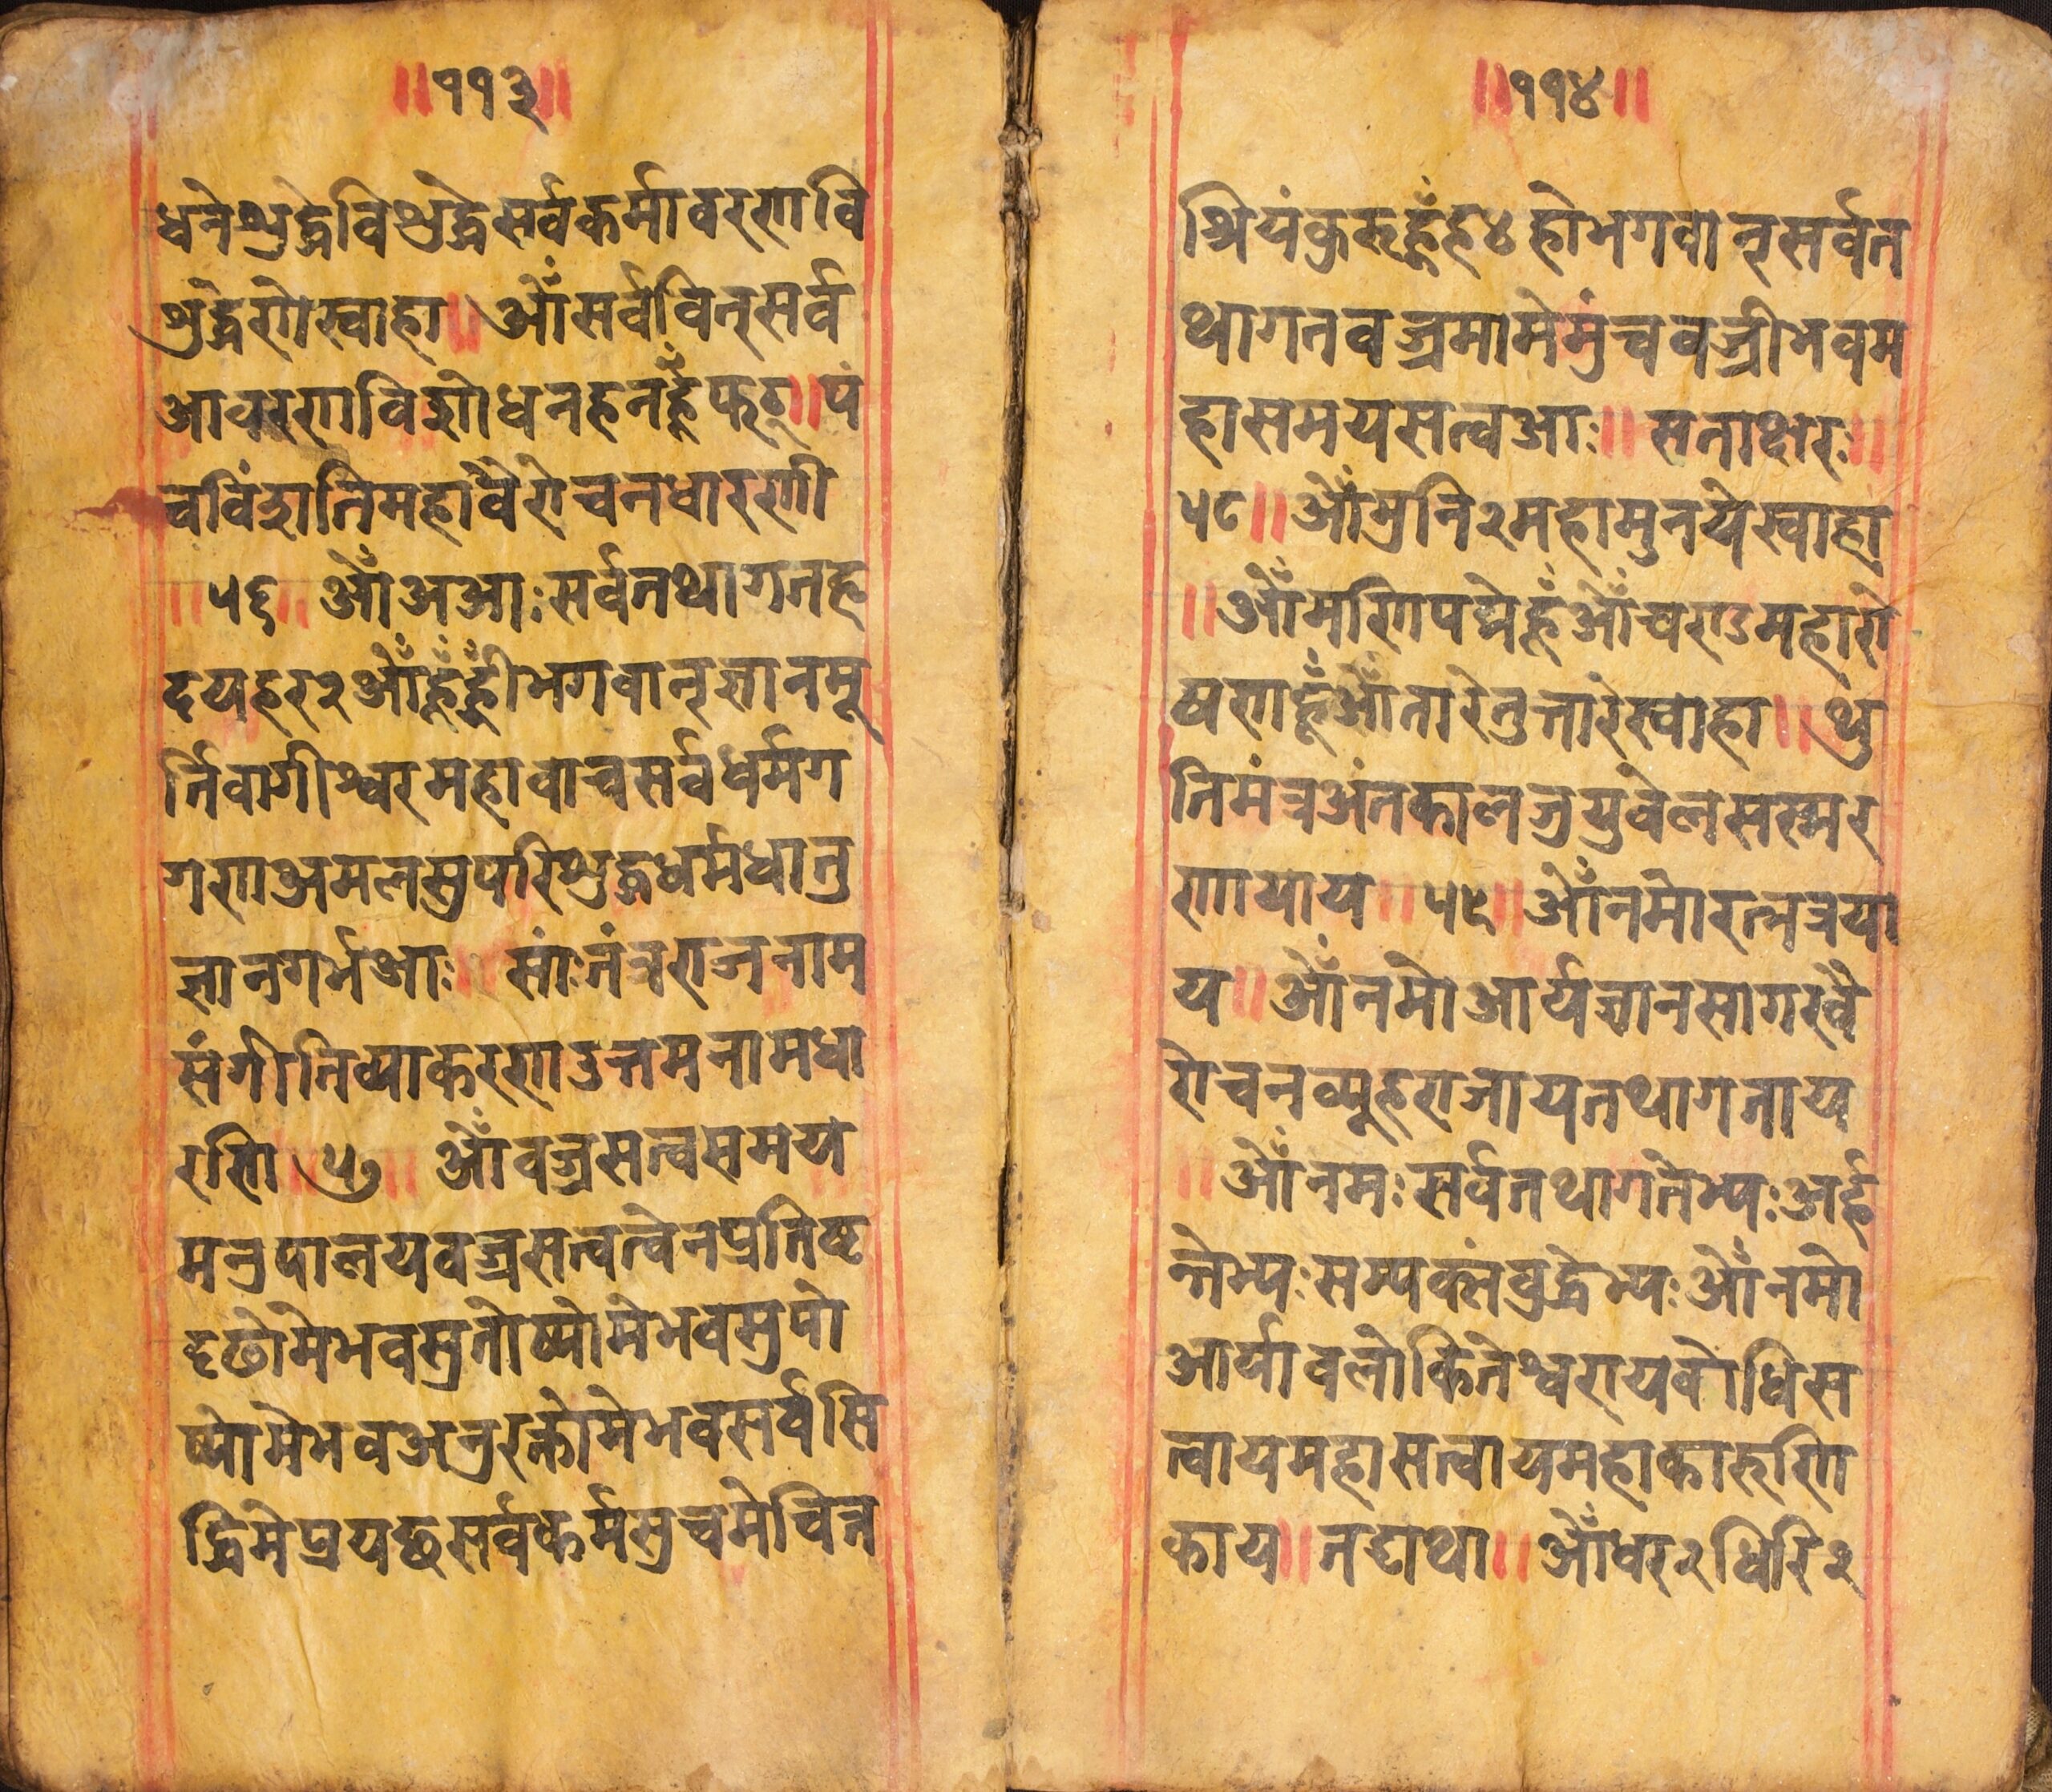 ॥११३॥
धनेशुद्धेविशुद्धेसर्वकर्मावरणवि
शुद्धेणेस्वाहा॥ओँसर्ववित्सर्व
आवरणविशोधनहनहूँफट्॥पं
चविंशतिमहावैरोचनधारणी
॥५६॥ओँअआःसर्वतथागतहृ
दयहर२ओँहूँह्रीँभगवान्ज्ञानमू
र्त्तिवागीश्वरमहावाचसर्वधर्मग
गणअमलसुपरिशुद्धधर्मधातु
ज्ञानगर्भआः॥सांःतंत्रराजनाम
संगीतिव्याकरणउत्तमनामधा
रणि॥५७॥ओँवज्रसत्वसमय
मनुपालयवज्रसत्वत्वेनप्रतिष्ट
दृढोमेभवसुतोष्योमेभवसुपो
ष्योमेभवअनुरक्तोमेभवसर्वसि
द्धिमेप्रयछसर्वकर्मसुचमेचित्त
॥११४॥
श्रियंकुरुहूँह४होभगवान्सर्वत
थागतवज्रमामेमुंचवज्रीभवम
हासमयसत्वआः॥सताक्षरः॥
५८॥ओँमुनि२महामुनयेस्वाहा
॥ओँमणिपद्मेहूँओँचण्डमहारो
षणहूँओँतारेतुत्तारेस्वाहा॥थु
तिमंत्रअंतकालजुयुवेलसस्मर
णयाय॥५९॥ओँनमोरत्नत्रया
य॥ओँनमोआर्यज्ञानसागरवै
रोचनव्यूहराजायतथागताय
॥ओँनमःसर्वतथागतेभ्यःअर्ह
न्तेभ्यःसम्यक्संबुद्धेभ्यःओँनमो
आर्यावलोकितेश्वरायबोधिस
त्वायमहासत्वायमहाकारुणि
काय॥तद्यथा॥ओँधर२धिरि२